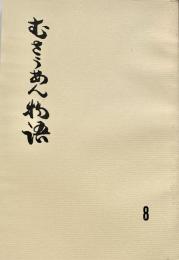 むさうあん物語
8